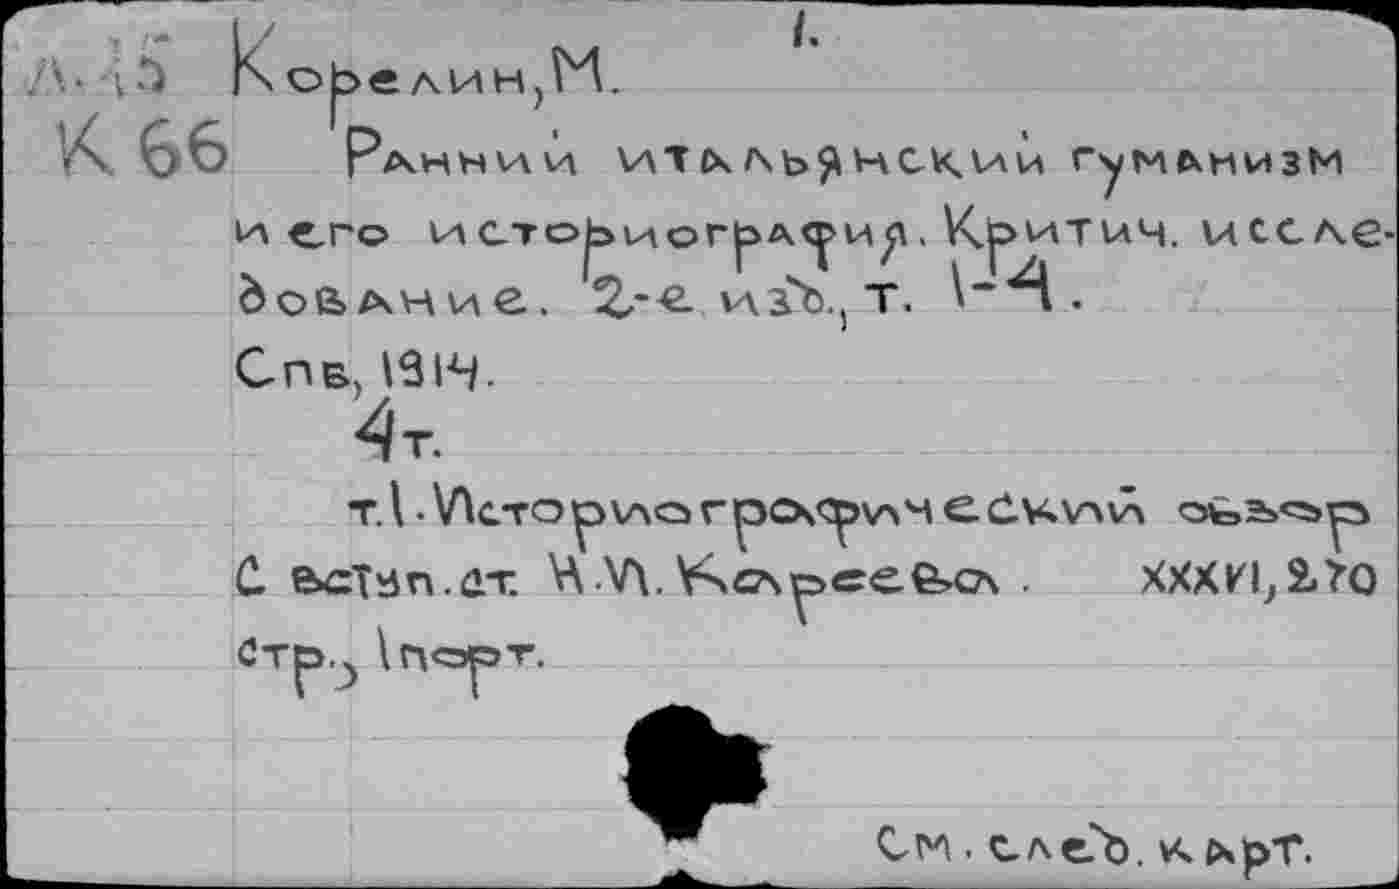 1.
Корелин, М.
К 66
Ранний итальянский гуманизм
и его историография. Критич. иссле-
дование. 2-е изд., т. 1-4.
Спб, 1914.
4т.
т.1. Историографический обзор
С вступ. ст. Н.И. Кареева. XXXVI, 270
стр., 1 порт.
См. след. карт.